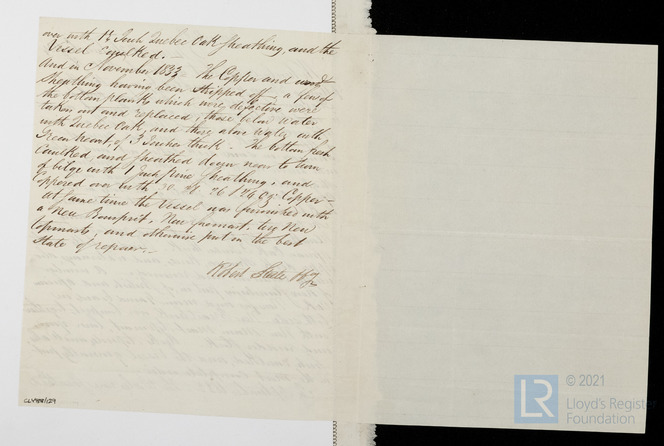 over with 1½ Inch Quebec Oak Sheathing, and the
Vessel Caulked.—
And in November 1833 The Copper and wood
Sheathing having been stripped off — a few of
the bottom planks which were defective were
taken out and replaced, those below water
with Quebec Oak, and those above Water with
Green heart, of 3 Inches thick. The bottom fresh
Caulked, and sheathed down near to turn
of bilge with 1 Inch pine sheathing, and
Coppered over with 30. 28. 26 / 24 oz. Copper —
At same time the Vessel was furnished with
a New Bowsprit, New foremast, New
topmasts, and otherwise put in the best
State of repair.—
Robert Steele
CLY498/129
LR
© 2021
Lloyd's Register
Foundation